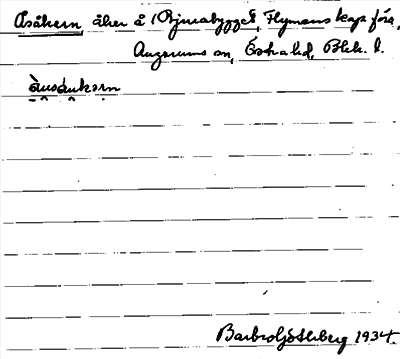 Åsåkern åker å Bjurabygget, Flymens kapförs,
Augerums sn, Östra hd, Blek. l.
Barbro Göthberg 1934